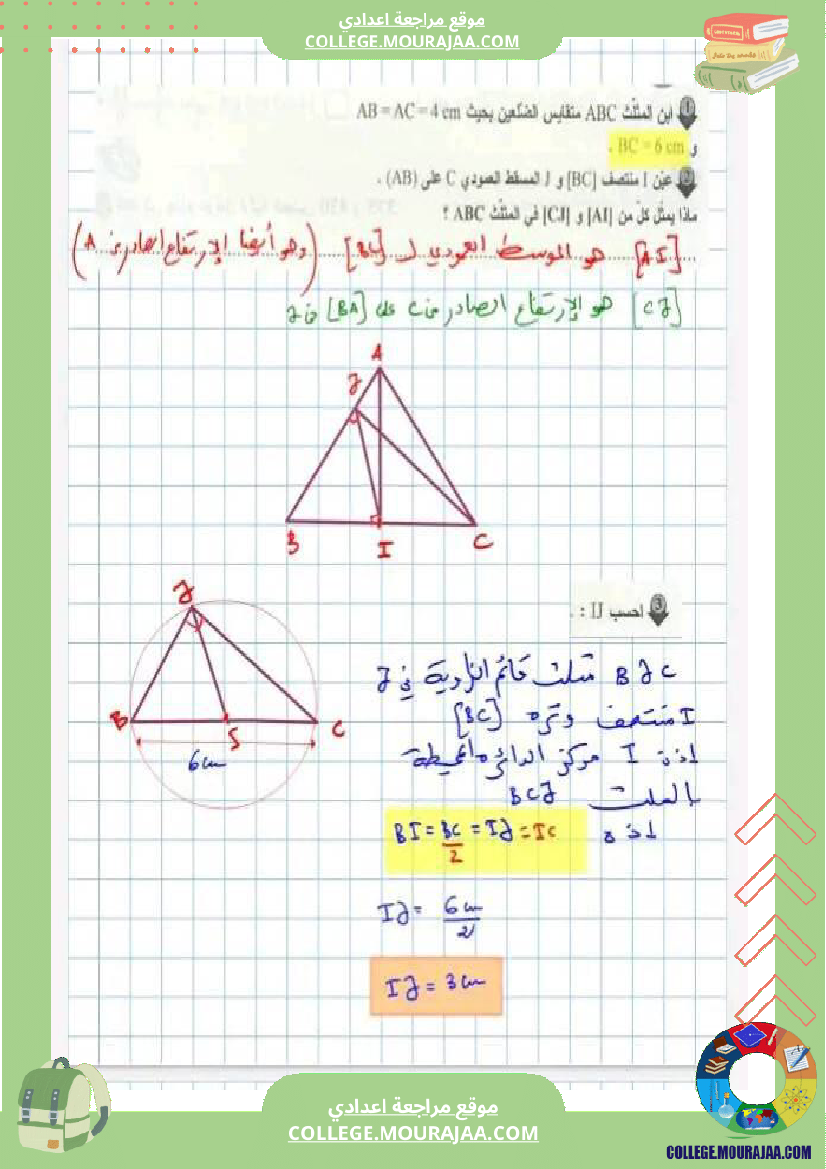 موقع مراجعة اعدادي
COLLEGE.MOURAJAA.COM
1 ابن المثلّث ABC متقايس الضّلعين بحيث AB = AC = 4 cm
و BC = 6 cm .
2 عيّن I منتصف [BC] و J المسقط العمودي C على (AB) .
ماذا يمثّل كلّ من [AI] و [CJ] في المثلّث ABC ؟
[AI] هو الموسط العمودي لـ [BC] (وهو أيضا الإرتفاع الصادر من A)
[CJ] هو الإرتفاع الصادر من C على [BA] في J
A
J
B
I
C
3 احسب IJ : .
J
B
C
6cm
BJC مثلث قائم الزاوية في J
I منتصف وتره [BC]
إذن I مركز الدائرة المحيطة
بالمثلث BCJ
إذن BI = BC/2 = IJ = IC
IJ = 6cm/2
IJ = 3cm
موقع مراجعة اعدادي
COLLEGE.MOURAJAA.COM
COLLEGE.MOURAJAA.COM